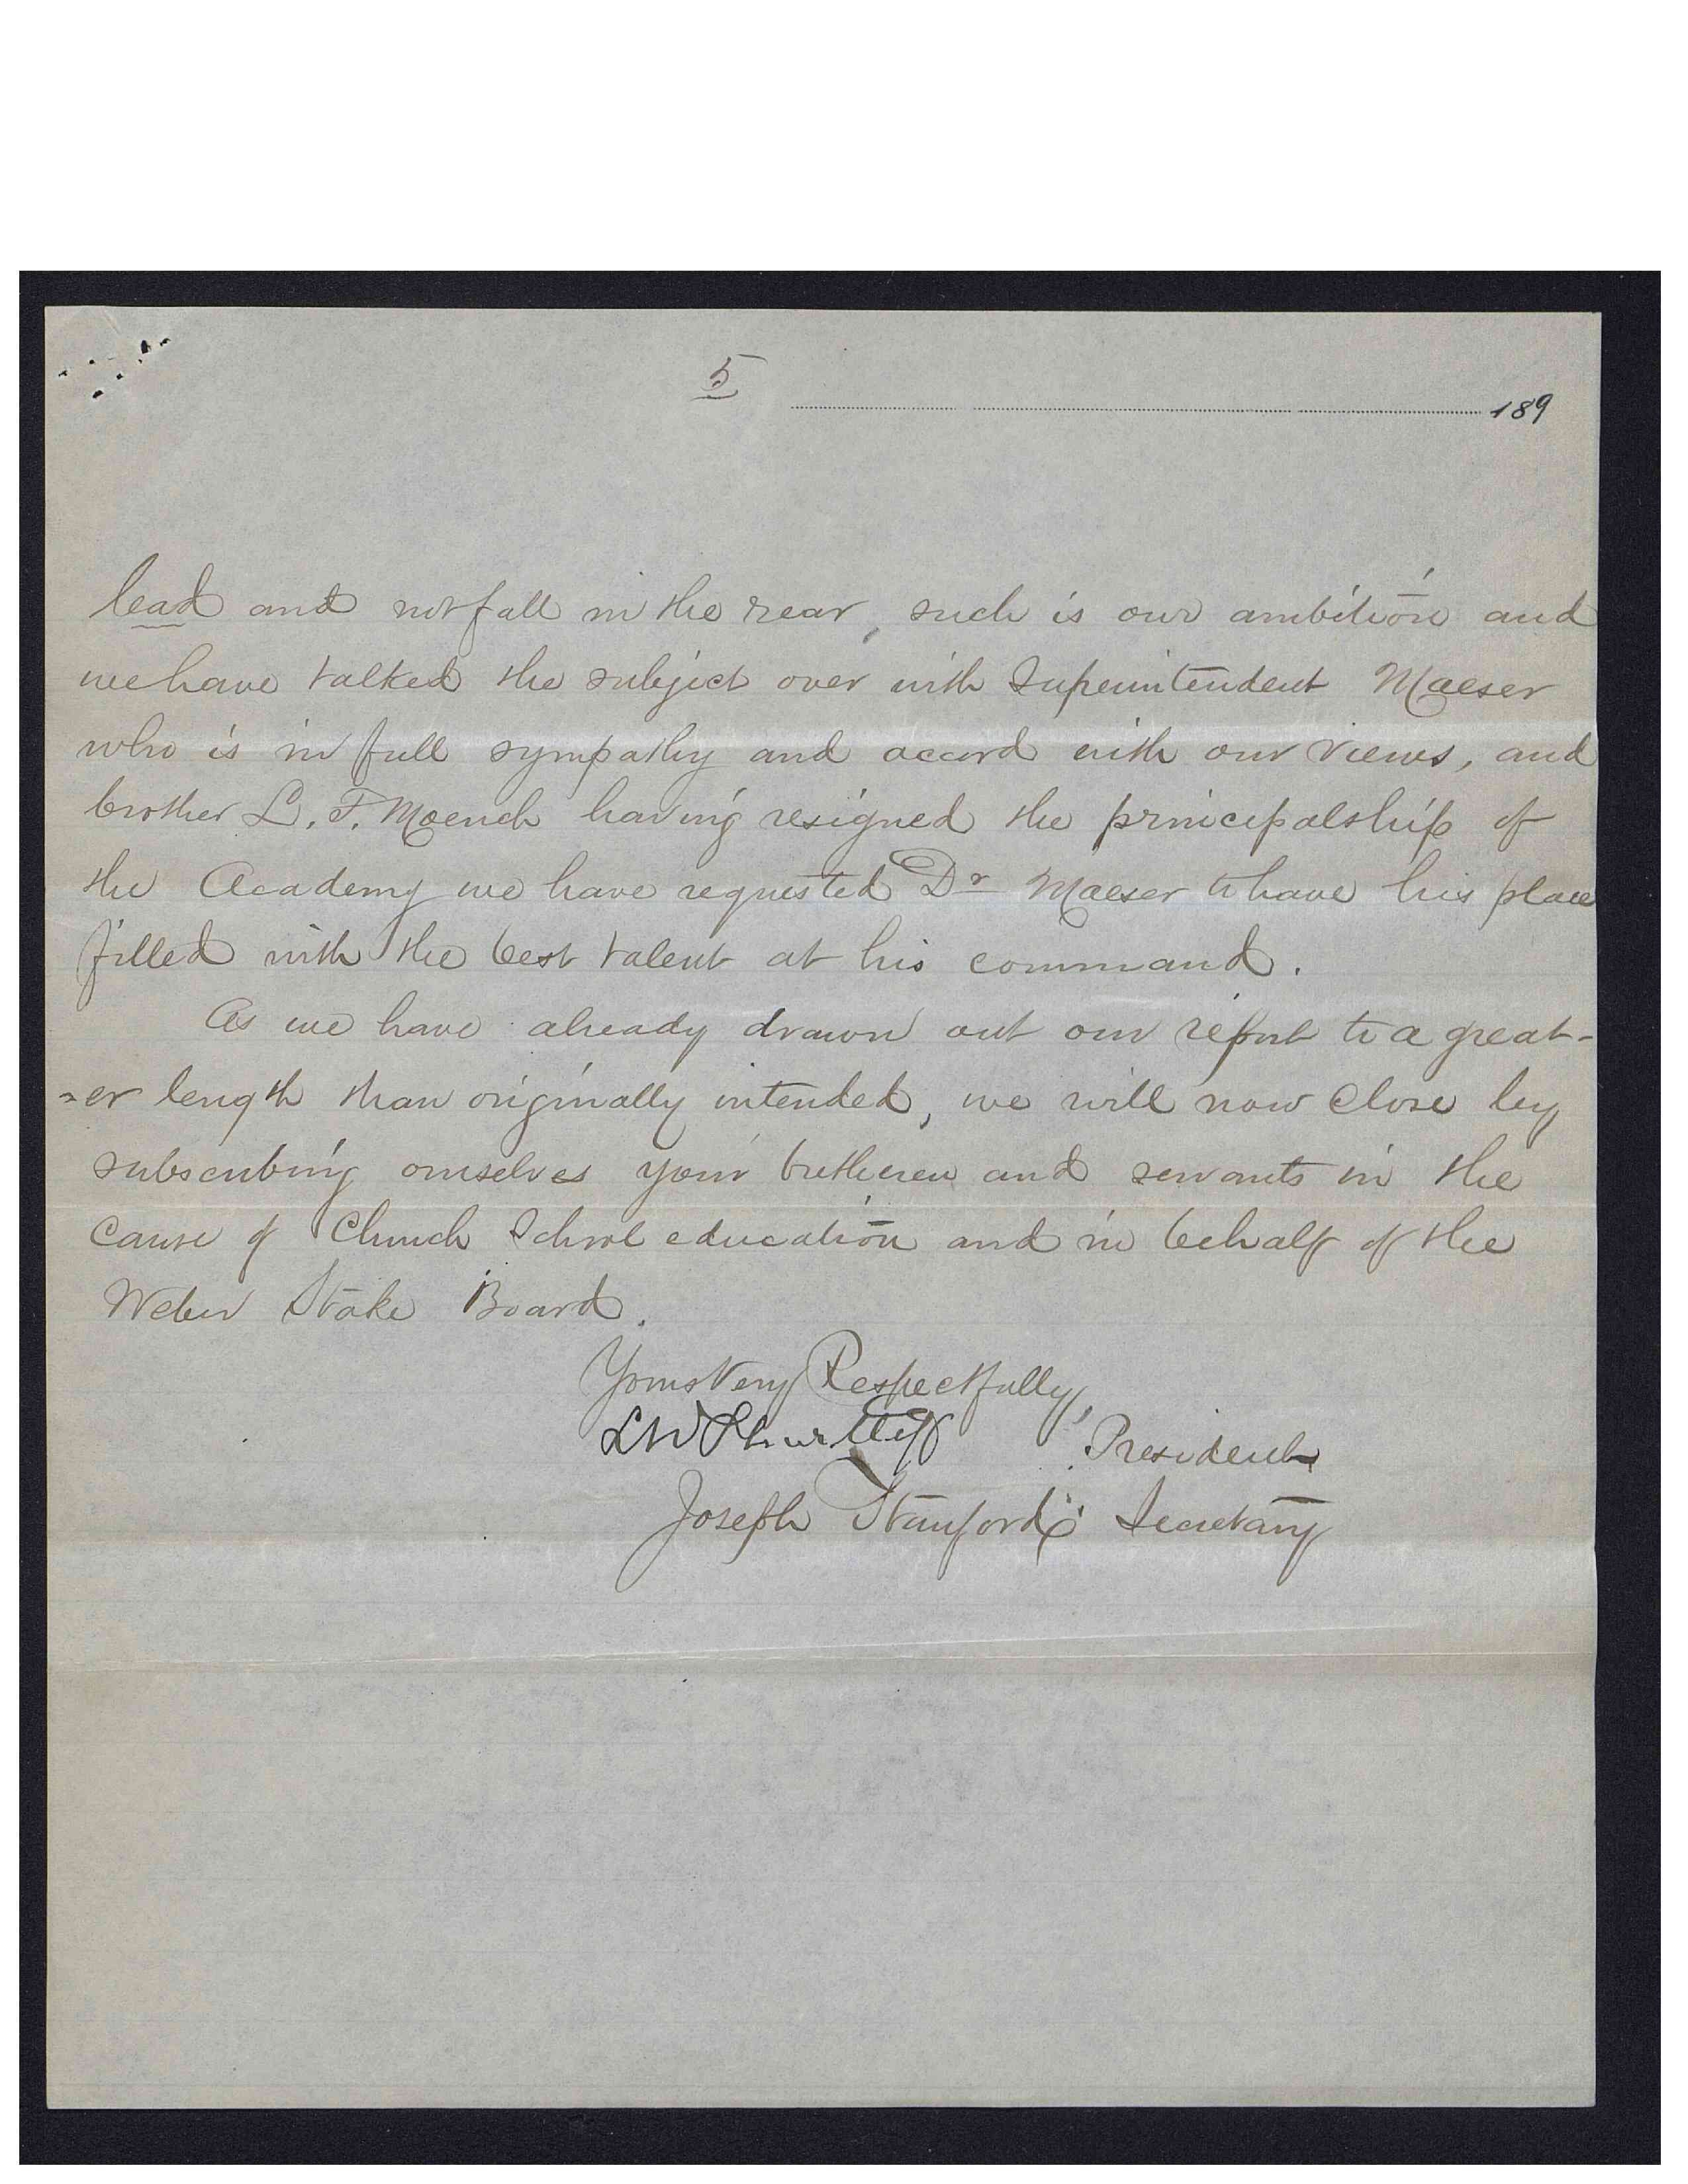 5
189
lead and not fall in the rear, such is our ambition and
we have talked the subject over with Superintendent Maeser
who is in full sympathy and accord with our views, and
brother L. F. Moench having resigned the principalship of
the Academy we have requested Dr Maeser to have his place
filled with the best talent at his command.
As we have already drawn out our report to a great-
=er length than originally intended, we will now close by
subscribing ourselves your bretheren and servants in the
cause of Church School education and in behalf of the
Weber Stake Board.
Yours Very Respectfully,
L W Shurtliff President
Joseph Stanford Secretary